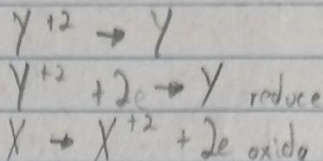 Y⁺² → Y
Y⁺² + 2e → Y reduce
X → X⁺² + 2e oxida